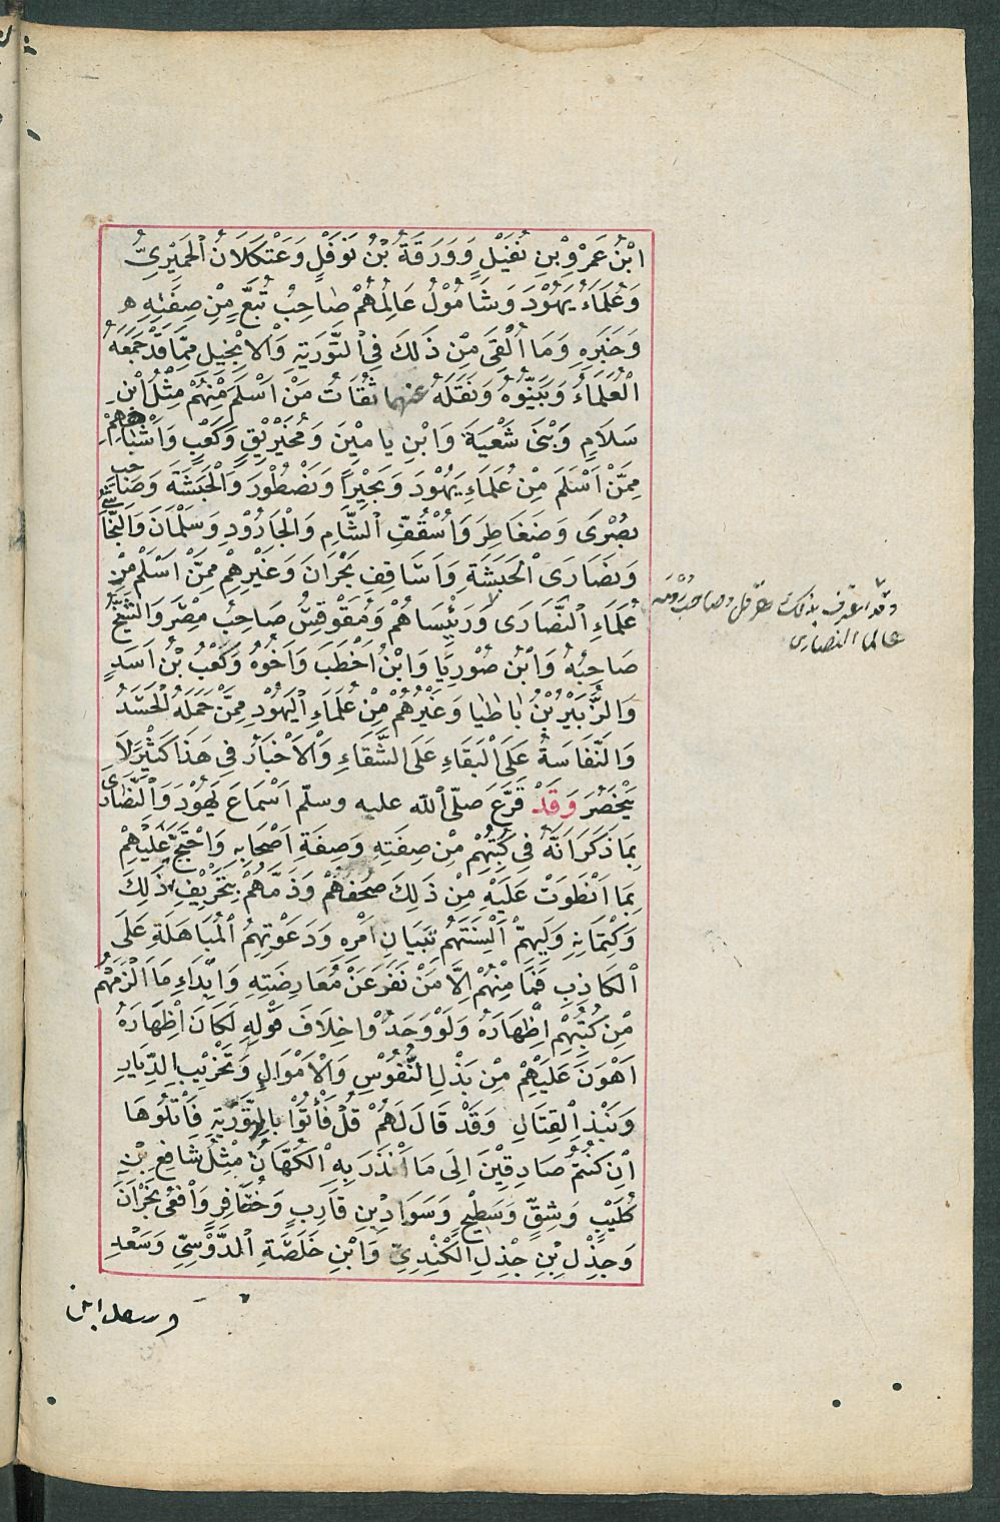 ابْنُ عَمْرِوِ بْنِ نُفَيْلٍ وَوَرَقَةُ بْنُ نَوْفَلٍ وَعَثْكَلَانُ الْحِمْيَرِيُّ
وَعُلَمَاءُ يَهُوْدَ وَشَامُوْلُ عَالِمُهُمْ صَاحِبُ تُبَّعٍ مِنْ صِفَتِهِ
وَخَبَرِهِ وَمَا اُلْقِىَ مِنْ ذَلِكَ فِي التَّوْرَيةِ وَالْاِنْجِيلِ مِمَّا قَدْ جَمَعَهُ
الْعُلَمَاءُ وَبَيَّنُوهُ وَنَقَلَهُ عنهما ثُقَاتُ مَنْ اَسْلَمَ مِنْهُمْ مِثْلُ ابْنِ
سَلَامٍ وَبَنِى سَعْيَةَ وَابْنِ يَامِيْنَ وَمُخَيْرِيْقٍ وَكَعْبٍ وَاَشْبَاهِهِمْ
مِمَّنْ اَسْلَمَ مِنْ عُلَمَاءِ يَهُوْدَ وَبَحِيْرَا وَنَصْطُوْرَ وَالْحَبَشَةِ وَصَاحِبِ
بُصْرَى وَضَغَاطِرَ وَاُسْقُفِّ الشَّامِ وَالْجَارُوْدِ وَسَلْمَانَ وَالنَّجَاشِيِّ
وَنَصَارَى الْحَبَشَةِ وَاَسَاقِفِ نَجْرَانَ وَغَيْرِهِمْ مِمَّنْ اَسْلَمَ مِنْ
عُلَمَاءِ النَّصَارَى وَرَئِيْسَاهُمْ وَمُقَوْقِسُ صَاحِبُ مِصْرَ وَالشَّيْخُ
وقد اعترف بذلك هرقل وصاحب رُوْمَه
عالما النصارى
صَاحِبُهُ وَابْنُ صُوْرِيَا وَابْنُ اَخْطَبَ وَاَخُوْهُ وَكَعْبُ بْنُ اَسَدٍ
وَالزُّبَيْرُ بْنُ بَاطِيَا وَغَيْرُهُمْ مِنْ عُلَمَاءِ الْيَهُوْدِ مِمَّنْ حَمَلَهُ الْحَسَدُ
وَالنَّفَاسَةُ عَلَى الْبَقَاءِ عَلَى الشَّقَاءِ وَالْاَخْبَارُ فِي هَذَا كَثِيْرَةٌ لَا
تَنْحَصِرُ وَقَدْ قَرَّعَ صلّى الله عليه وسلّم اَسْمَاعَ يَهُوْدَ وَالنَّصَارَى
بِمَا ذَكَرَ اَنَّهُ فِي كُتُبِهِمْ مِنْ صِفَتِهِ وَصِفَةِ اَصْحَابِهِ وَاحْتَجَّ عَلَيْهِمْ
بِمَا انْطَوَتْ عَلَيْهِ مِنْ ذَلِكَ صُحُفُهُمْ وَذَمَّهُمْ بِتَحْرِيْفِ ذَلِكَ
وَكِتْمَانِهِ وَلَيِّهِمْ اَلْسِنَتَهُمْ بِبَيَانِ اَمْرِهِ وَدَعْوَتِهِمُ الْمُبَاهَلَةِ عَلَى
الْكَاذِبِ فَمَا مِنْهُمْ اِلَّا مَنْ نَفَرَ عَنْ مُعَارِضَتِهِ وَاِبْدَاءِ مَا اَلْزَمَهُمْ
مِنْ كُتُبِهِمْ اِظْهَارَهُ وَلَوْ وَجَدُوْا خِلَافَ قَوْلِهِ لَكَانَ اِظْهَارُهُ
اَهْوَنَ عَلَيْهِمْ مِنْ بَذْلِ النُّفُوْسِ وَالْاَمْوَالِ وَتَخْرِيْبِ الدِّيَارِ
وَنَبْذِ الْقِتَالِ وَقَدْ قَالَ لَهُمْ قُلْ فَأْتُوْا بِالتَّوْرَيةِ فَاتْلُوْهَا
اِنْ كُنْتُمْ صَادِقِيْنَ اِلَى مَا اَنْذَرَ بِهِ الْكُهَّانُ مِثْلُ شَافِعِ بْنِ
كُلَيْبٍ وَشِقٍّ وَسَطِيْحٍ وَسَوَادِ بْنِ قَارِبٍ وَخُنَافِرٍ وَاَفْعَى نَجْرَانَ
وَجِذْلِ بْنِ جِذْلِ الْكِنْدِيِّ وَابْنِ خَلَصَةَ الدَّوْسِيِّ وَسَعْدِ
وسعد ابن